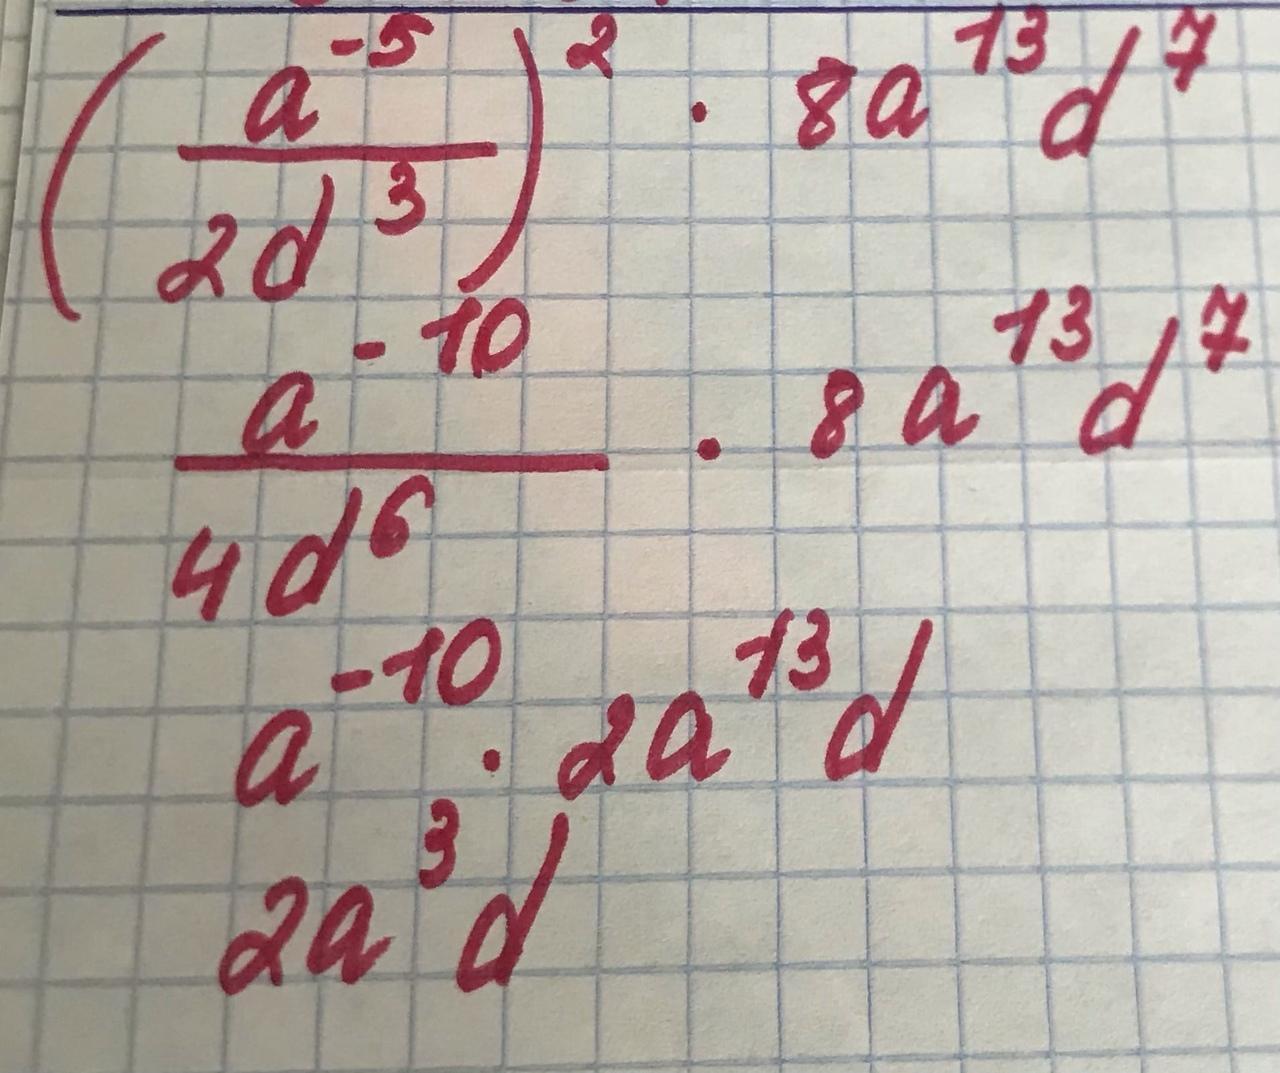 (a^-5 / 2d^3)^2 · 8a^13 d^7
a^-10 / 4d^6 · 8a^13 d^7
a^-10 · 2a^13 d
2a^3 d